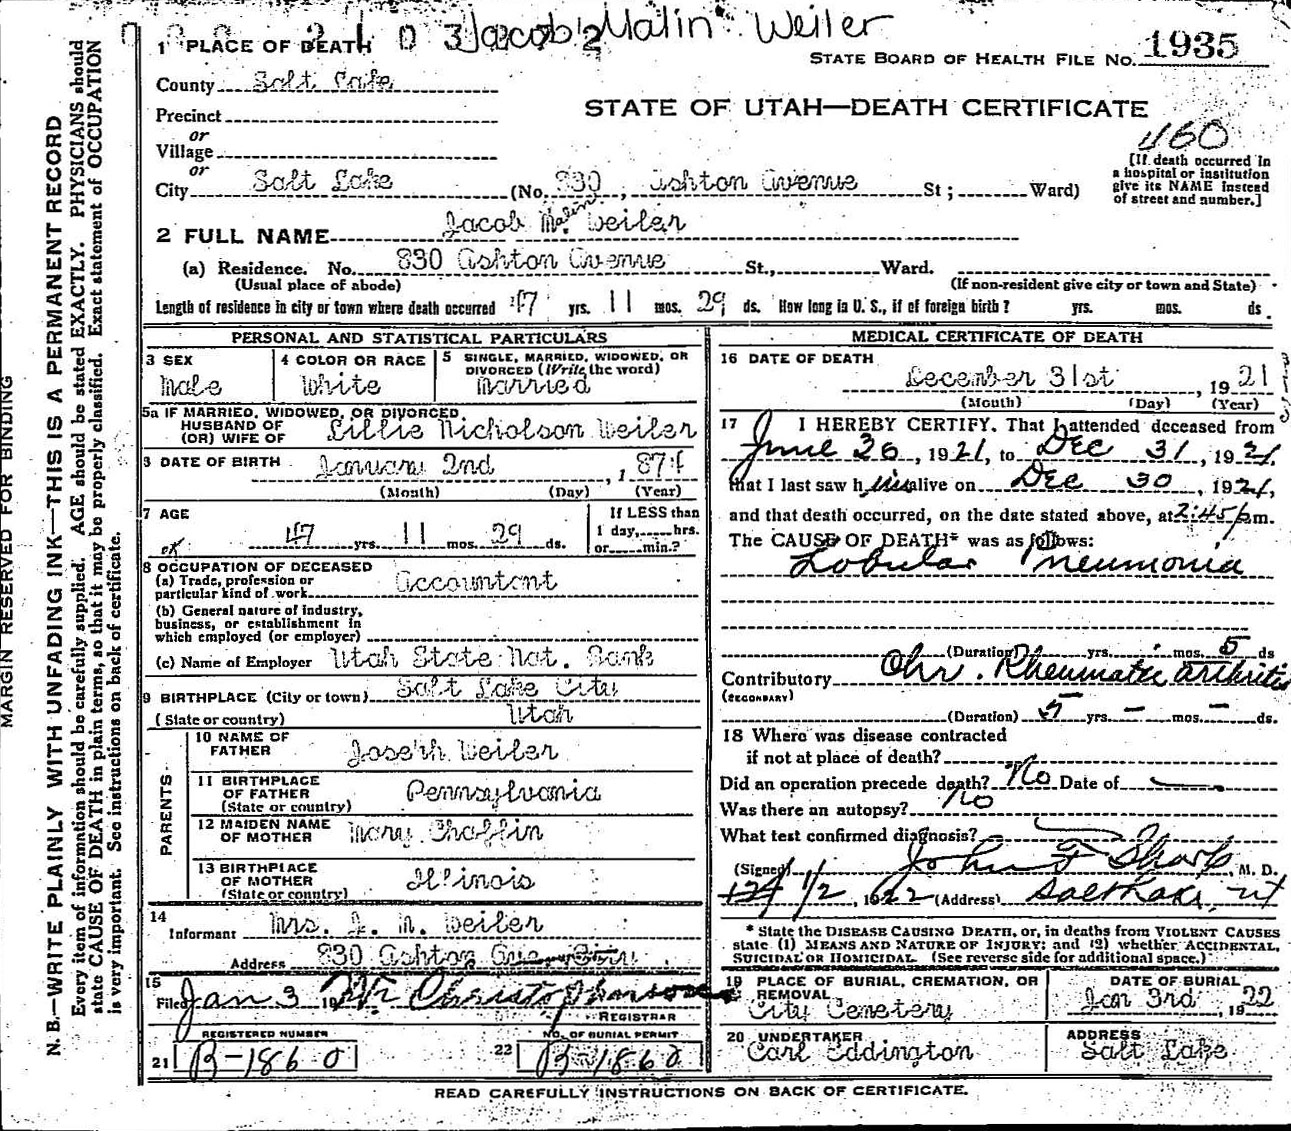 Jacob Malin Weiler
1 PLACE OF DEATH
STATE BOARD OF HEALTH FILE No. 1935
County Salt Lake
STATE OF UTAH—DEATH CERTIFICATE
Precinct
or
Village
or
460
[If death occurred in a hospital or institution give its NAME instead of street and number.]
City Salt Lake (No. 830, Ashton Avenue St; Ward)
2 FULL NAME Jacob M. Malin Weiler
(a) Residence. No. 830 Ashton Avenue St., Ward.
(Usual place of abode) (If non-resident give city or town and State)
Length of residence in city or town where death occurred 47 yrs. 11 mos. 29 ds. How long in U. S., if of foreign birth? yrs. mos. ds.
PERSONAL AND STATISTICAL PARTICULARS
3 SEX Male
4 COLOR OR RACE White
5 SINGLE, MARRIED, WIDOWED, OR DIVORCED (Write the word) Married
5a IF MARRIED, WIDOWED, OR DIVORCED
HUSBAND OF
(OR) WIFE OF Lillie Nicholson Weiler
6 DATE OF BIRTH January 2nd, 1874
(Month) (Day) (Year)
7 AGE
47 yrs. 11 mos. 29 ds.
If LESS than
1 day, hrs.
or min.?
ok
8 OCCUPATION OF DECEASED
(a) Trade, profession or
particular kind of work Accountant
(b) General nature of industry,
business, or establishment in
which employed (or employer)
(c) Name of Employer Utah State Nat. Bank
9 BIRTHPLACE (City or town) Salt Lake City
(State or country) Utah
PARENTS
10 NAME OF
FATHER Joseph Weiler
11 BIRTHPLACE
OF FATHER
(State or country) Pennsylvania
12 MAIDEN NAME
OF MOTHER Mary Chaffin
13 BIRTHPLACE
OF MOTHER
(State or country) Illinois
14
Informant Mrs. J. M. Weiler
Address 830 Ashton Ave
15
Filed Jan 3 19 Christophersone
REGISTRAR
REGISTERED NUMBER
21 B-1860
NO. OF BURIAL PERMIT
22 B-1860
MEDICAL CERTIFICATE OF DEATH
16 DATE OF DEATH
December 31st, 1921
(Month) (Day) (Year)
17 I HEREBY CERTIFY, That I attended deceased from
June 26, 1921, to Dec 31, 1921,
that I last saw him alive on Dec 30, 1921,
and that death occurred, on the date stated above, at 2:45 p m.
The CAUSE OF DEATH* was as follows:
Lobular Pneumonia
(Duration) yrs. mos. 5 ds
Contributory Chr. Rheumatic arthritis
(SECONDARY)
(Duration) 5 yrs. – mos. – ds.
18 Where was disease contracted
if not at place of death?
Did an operation precede death? No Date of
Was there an autopsy? No
What test confirmed diagnosis?
(Signed) John F Sharp, M. D.
1/2, 1922 (Address) Salt Lake, Ut
* State the DISEASE CAUSING DEATH, or, in deaths from VIOLENT CAUSES
state (1) MEANS AND NATURE OF INJURY; and (2) whether ACCIDENTAL,
SUICIDAL OR HOMICIDAL. (See reverse side for additional space.)
19 PLACE OF BURIAL, CREMATION, OR
REMOVAL
City Cemetery
DATE OF BURIAL
Jan 3rd, 1922
20 UNDERTAKER
Carl Eddington
ADDRESS
Salt Lake
READ CAREFULLY INSTRUCTIONS ON BACK OF CERTIFICATE.
MARGIN RESERVED FOR BINDING
N. B.—WRITE PLAINLY WITH UNFADING INK—THIS IS A PERMANENT RECORD
Every item of information should be carefully supplied. AGE should be stated EXACTLY. PHYSICIANS should
state CAUSE OF DEATH in plain terms, so that it may be properly classified. Exact statement of OCCUPATION
is very important. See instructions on back of certificate.